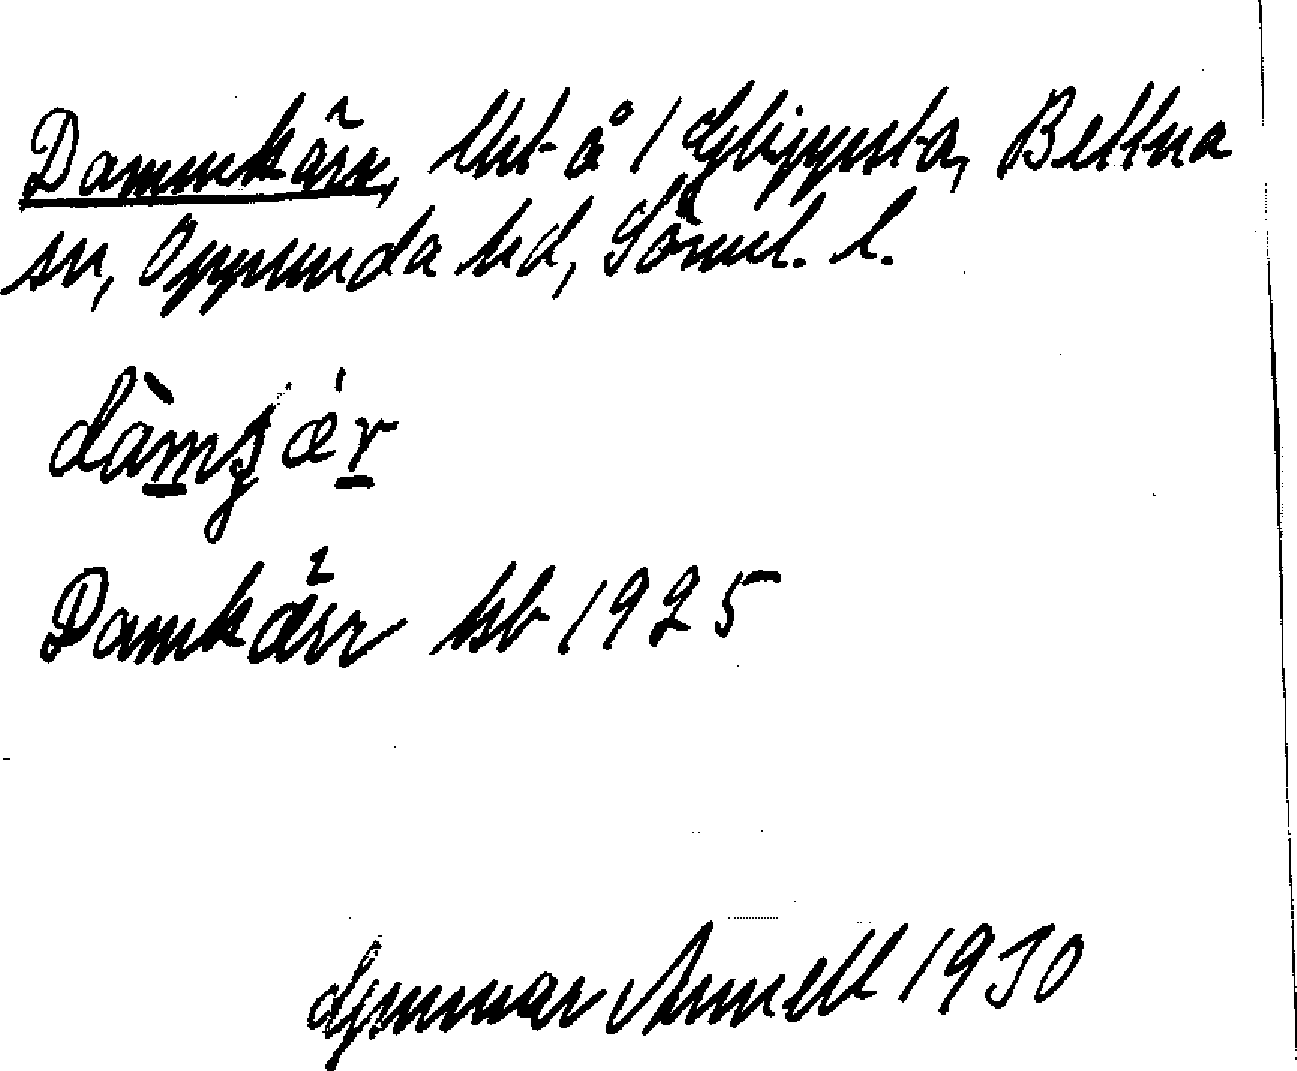 Dammkärr, lht å 1 Glippsta, Bettna
sn, Oppunda hd, Sörml. l.
dàmȷær
Damkärr hb 1925
Gunnar Arnell 1930